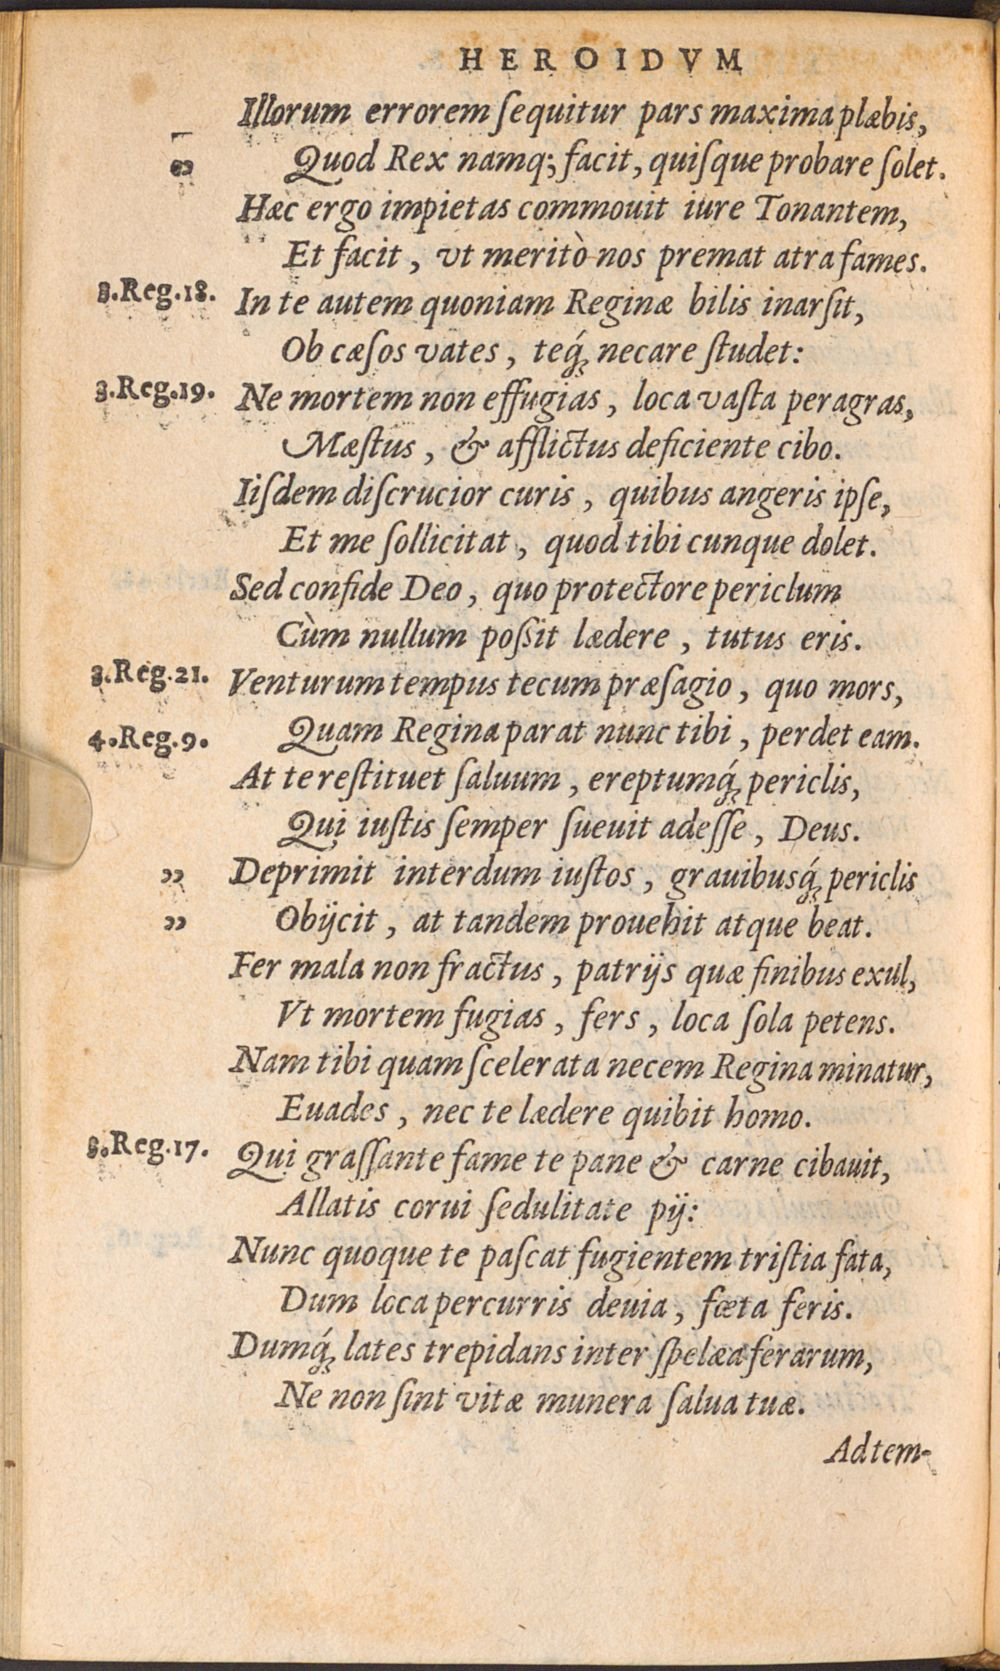 HEROIDVM
Illorum errorem ſequitur pars maxima plæbis,
„ Quod Rex namq; facit, quiſque probare ſolet.
Hæc ergo impietas commouit iure Tonantem,
Et facit, vt meritò nos premat atra fames.
3.Reg.18. In te autem quoniam Reginæ bilis inarſit,
Ob cæſos vates, teq́ue necare ſtudet:
3.Reg.19. Ne mortem non effugias, loca vaſta peragras,
Mæſtus, & afflictus deficiente cibo.
Iiſdem diſcrucior curis, quibus angeris ipſe,
Et me ſollicitat, quod tibi cunque dolet.
Sed confide Deo, quo protectore periclum
Cùm nullum poſsit lædere, tutus eris.
3.Reg.21. Venturum tempus tecum præſagio, quo mors,
4.Reg.9. Quam Regina parat nunc tibi, perdet eam.
At te reſtituet ſaluum, ereptumq́ue periclis,
Qui iuſtis ſemper ſueuit adeſſe, Deus.
„ Deprimit interdum iuſtos, grauibusq́ue periclis
„ Obijcit, at tandem prouehit atque beat.
Fer mala non fractus, patrijs quæ finibus exul,
Vt mortem fugias, fers, loca ſola petens.
Nam tibi quam ſcelerata necem Regina minatur,
Euades, nec te lædere quibit homo.
3.Reg.17. Qui graſſante fame te pane & carne cibauit,
Allatis corui ſedulitate pij:
Nunc quoque te paſcat fugientem triſtia fata,
Dum loca percurris deuia, fœta feris.
Dumq́ue lates trepidans inter ſpelæa ferarum,
Ne non ſint vitæ munera ſalua tuæ.
Ad tem-